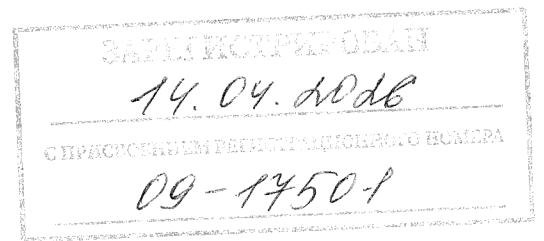 ЗАРЕГИСТРИРОВАН
14.04.2026
С ПРИСВОЕНИЕМ РЕГИСТРАЦИОННОГО НОМЕРА
09-17501